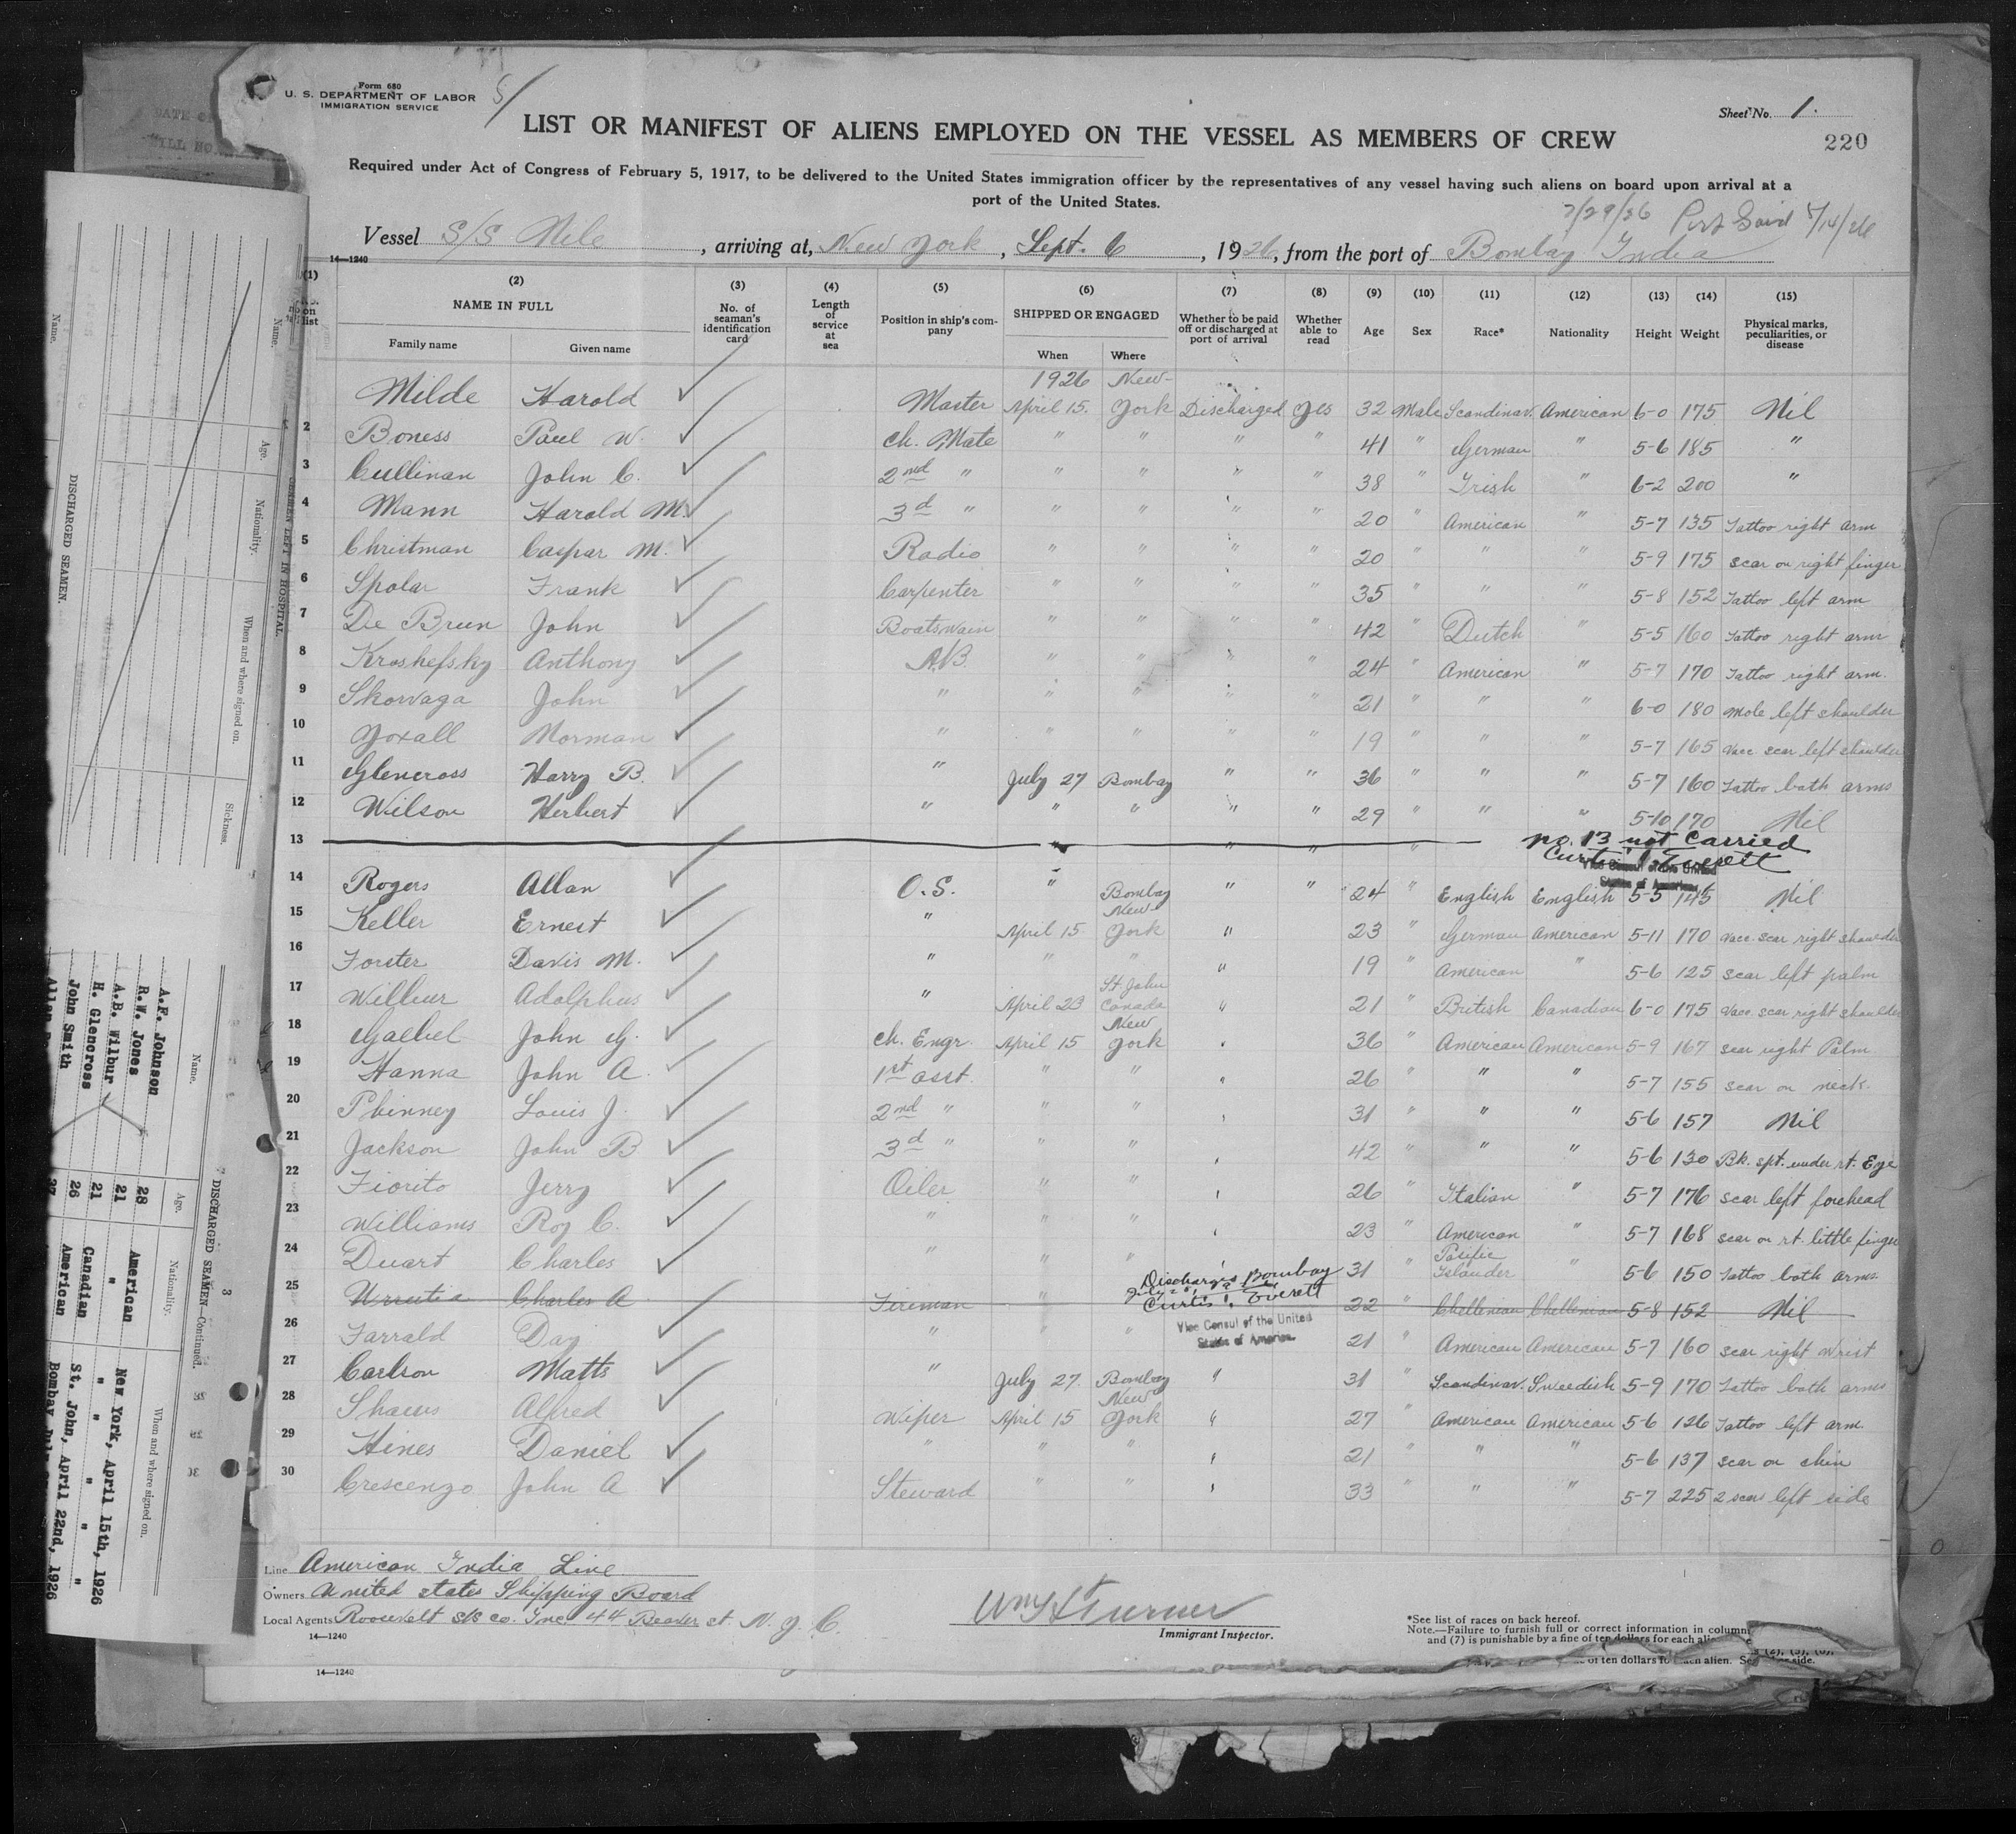 Form 680
U. S. DEPARTMENT OF LABOR
IMMIGRATION SERVICE
Sheet No. 1.
LIST OR MANIFEST OF ALIENS EMPLOYED ON THE VESSEL AS MEMBERS OF CREW
220
Required under Act of Congress of February 5, 1917, to be delivered to the United States immigration officer by the representatives of any vessel having such aliens on board upon arrival at a
port of the United States.
7/29/26 Port Said 8/14/26
Vessel S/S Nile, arriving at, New York, Sept. 6, 1926, from the port of Bombay India
14—1240
(1) (2) (3) (4) (5) (6) (7) (8) (9) (10) (11) (12) (13) (14) (15)
No. on list NAME IN FULL Family name Given name No. of seaman's identification card Length of service at sea Position in ship's company SHIPPED OR ENGAGED When Where Whether to be paid off or discharged at port of arrival Whether able to read Age Sex Race* Nationality Height Weight Physical marks, peculiarities, or disease
1926 New
Milde Harold Master April 15. York Discharged Yes 32 Male Scandinav. American 6-0 175 Nil
2 Boness Paul W. Ch. Mate " " " " 41 " German " 5-6 185 "
3 Cullinan John C. 2nd " " " " " 38 " Irish " 6-2 200 "
4 Mann Harold M. 3d " " " " " 20 " American " 5-7 135 Tattoo right arm
5 Christman Caspar M. Radio " " " " 20 " " " 5-9 175 scar on right finger
6 Spolar Frank Carpenter " " " " 35 " " " 5-8 152 Tattoo left arm
7 De Bruin John Boatswain " " " " 42 " Dutch " 5-5 160 Tattoo right arm
8 Kroshefsky Anthony A.B. " " " " 24 " American " 5-7 170 Tattoo right arm.
9 Skorvaga John " " " " " 21 " " " 6-0 180 Mole left shoulder
10 Yoxall Norman " " " " " 19 " " " 5-7 165 Vacc scar left shoulder
11 Glencross Harry B. " July 27 Bombay " " 36 " " " 5-7 160 Tattoo both arms
12 Wilson Herbert " " " " " 29 " " " 5-10 170 Nil
13 " " " " no. 13 not carried
Curtis T. Everett
Vice Consul of the United
States of America.
14 Rogers Allan O.S. " Bombay " " 24 " English English 5-5 145 Nil
15 Keller Ernest " April 15 New York " 23 " German American 5-11 170 Vacc. scar right shoulder
16 Forster Davis M. " " " " 19 " American " 5-6 125 scar left palm
17 Wilbur Adolphus " April 23 St. John Canada " 21 " British Canadian 6-0 175 Vacc. scar right shoulder
18 Gaebel John G. Ch. Engr. April 15 New York " 36 " American American 5-9 167 scar right Palm
19 Hanna John A. 1st asst. " " " 26 " " " 5-7 155 scar on neck.
20 Phinney Louis J. 2nd " " " " 31 " " " 5-6 157 Nil
21 Jackson John B 3d " " " " 42 " " " 5-6 130 Bk. spt. under rt. Eye
22 Fiorito Jerry Oiler " " " 26 " Italian " 5-7 176 scar left forehead
23 Williams Roy C. " " " " 23 " American " 5-7 168 scar on rt. little finger
24 Duart Charles " " " " 31 " Pasific Islander " 5-6 150 Tattoo both arms.
Discharged Bombay
Curtis T. Everett
25 Urrutia Charles A Fireman " 22 " Chellenian Chellenian 5-8 152 Nil
Vice Consul of the United
States of America.
26 Farrald Day " " " 21 " American American 5-7 160 scar right wrist
27 Carlson Matts " July 27. Bombay " 31 " Scandinav. Sweedish 5-9 170 Tattoo both arms
28 Shaws Alfred Wiper April 15 New York " 27 " American American 5-6 126 Tattoo left arm.
29 Hines Daniel " " " " 21 " " " 5-6 137 scar on chin
30 Crescenzo John A Steward " " " 33 " " " 5-7 225 2 scars left side
Line American India Line
Owners United States Shipping Board
Local Agents Roosevelt S/S Co. Inc. 44 Beaver St. N. Y. C.
14—1240
Wm H Turner
Immigrant Inspector.
*See list of races on back hereof.
Note.—Failure to furnish full or correct information in columns
and (7) is punishable by a fine of ten dollars for each alien
of ten dollars for each alien. See
side.
14—1240
Name. Age. Nationality. When and where signed on. Sickness.
SEAMEN LEFT IN HOSPITAL.
DISCHARGED SEAMEN.
Name.
3
DISCHARGED SEAMEN—Continued.
Name. Age. Nationality. When and where signed on.
A.F. Johnson 28 American New York, April 15th, 1926
R.W. Jones 21 " " " "
A.B. Wilbur 21 Canadian St. John, April 22nd, 1926
H. Glencross
John Smith 26 American Bombay